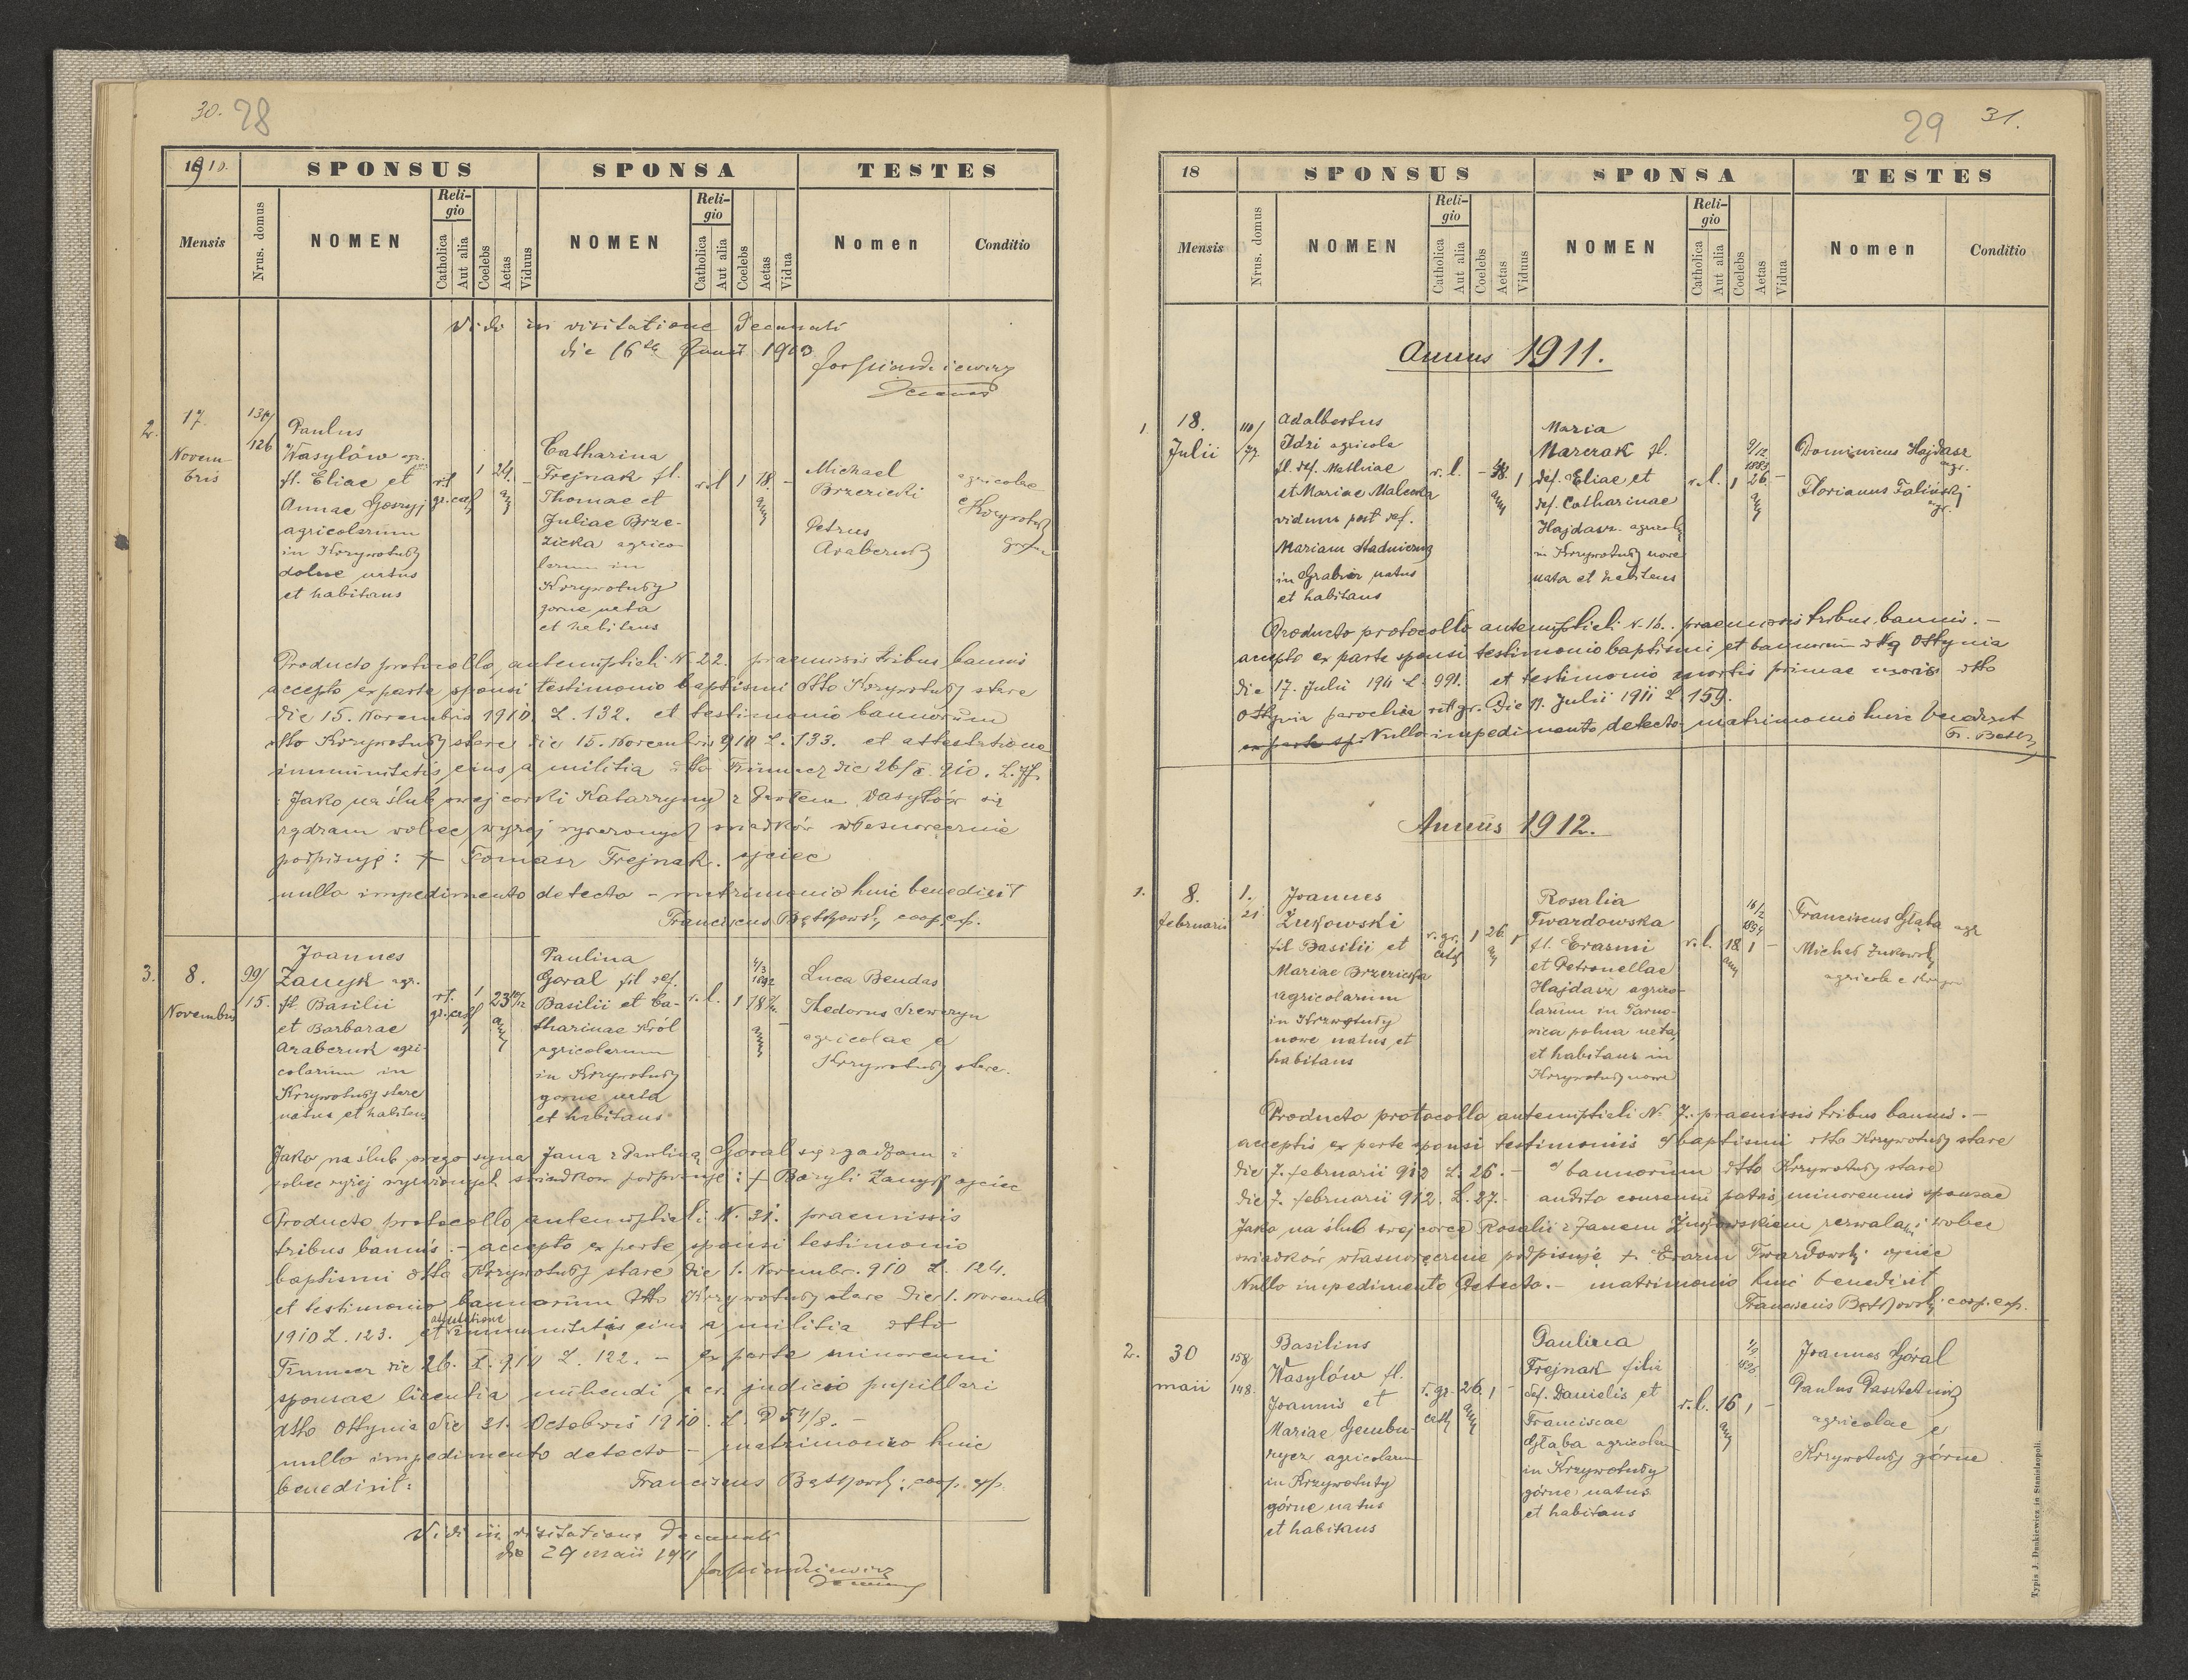 30. 28
1910.
SPONSUS
SPONSA
TESTES
Mensis
Nrus. domus
NOMEN
Religio
Catholica
Aut alia
Coelebs
Aetas
Viduus
NOMEN
Religio
Catholica
Aut alia
Coelebs
Aetas
Vidua
Nomen
Conditio
Vidi in visitatione Decanali
die 16
2.
17.
Novembris
126
Paulus
Wasylów agr.
fl. Eliae et
Annae
agricolarum
in Krzywotuły
dolne natus
et habitans
rit
gr. cath
1
24.
Catharina
Frejnak fl.
Thomae et
Juliae Brze-
zicka agrico-
larum in
Krzywotuły
gorne nata
et habitans
r. l
1
18.
Michael
Brzezicki
Petrus
Araberuk
agricolae
e Krzywotuły
gorne
Producto protocollo antenuptiali N. 22. praemissis tribus bannis
accepto ex parte sponsi testimonio baptismi dtto Krzywotuły stare
die 15. Novembris 1910. L. 132. et testimonio bannorum
dtto Krzywotuły stare die 15. Novembris 910 L. 133. et attestatione
immunitatis eius a militia dtto Tłumacz die 26/X. 910. L.
Jako na ślub swej corki Katarzyny z Pawłem Wasylów się
zgdzam wobec wyżej wyrażonych swiadków własnoręcznie
podpisuję: + Tomasz Frejnak. ojciec
nullo impedimento detecto - matrimonio huic benedixit
Franciscus coop. exp.
3.
8.
Novembris
99/
15.
Joannes
Zanyk agr.
fl Basilii
et Barbarae
Araberuk agri-
colarum in
Krzywotuły stare
natus et habitans
rt.
gr. cath
1
23
Paulina
Goral fil def.
Basilii et Ca-
tharinae Król
agricolarum
in Krzywotuły
gorne nata
et habitans
r. l.
1
4/3
1892
18
Luca Bendas
Thedorus Szeweryn
agricolae e
Krzywotuły stare.
Jako na ślub swego syna Jana z Pauliną Goral się zgadzam i
wobec wyżej wyrażonych swiadkow podpisuje: + Bazyli Zanyk ojciec
Producto protocollo antenuptiali N. 31. praemissis
tribus bannis. - accepto ex parte sponsi testimonio
baptismi dtto Krzywotuły stare die 1. Novembr. 910 L. 124.
et testimonio bannorum dtto Krzywotuły stare die 1. Novemb
1910 L. 123. et immunitatis eius a militia dtto
Tłumacz die 26. X. 910 L. 122. - ex parte minorenni
sponsae licentia nubendi a judicio pupillari
dtto Ottynia die 31. Octobris 1910. L. P 54/8. -
nullo impedimento detecto - matrimonio huic
benedixit:
Franciscus coop. exp.
Vidi in visitatione Decanali
die 29 maii 1911
29 31.
18
SPONSUS
SPONSA
TESTES
Mensis
Nrus. domus
NOMEN
Religio
Catholica
Aut alia
Coelebs
Aetas
Viduus
NOMEN
Religio
Catholica
Aut alia
Coelebs
Aetas
Vidua
Nomen
Conditio
Annus 1911.
1
18.
Julii
110/
77
Adalbertus
Idzi agricola
fl. def. Mathiae
et Mariae
viduus post def.
Mariam
in Grabicz natus
et habitans
r. l.
1
Maria
Marczak fl.
def. Eliae et
def. Catharinae
Hajdasz agricol
in Krzywotuły nowe
nata et habitans
r. l.
1
9/12
1883
26
Dominicus Hajdasz
agr.
Florianus Faliński
agr.
Producto protocollo antenuptiali N. 16. praemissis tribus bannis. -
accepto ex parte sponsi testimonio baptismi et bannorum dtto Ottynia
die 17. Julii 191 L. 991. et testimonio mortis primae uxoris dtto
Ottynia parochia rit gr. die 17. Julii 1911 L 159.
Nullo impedimento detecto matrimonio huic benedixit
Annus 1912.
1.
8.
februarii
1.
21.
Joannes
Żukowski
fil Basilii et
Mariae Brzezicka
agricolarum
in Krzywotuły
nowe natus et
habitans
r. gr.
cath
1
26.
Rosalia
Twardowska
fl. Erasmi
et Petronellae
Hajdasz agrico-
larum in Tarno-
wica polna nata,
et habitans in
Krzywotuły nowe
r. l.
16/2
1894
18
1
Franciscus Głąba agr
Michał Żukowski
agricola e
Producto protocollo antenuptiali N. 7. praemissis tribus bannis. -
acceptis ex parte sponsi testimoniis baptismi dtto Krzywotuły stare
die 7. februarii 912 L. 26. - bannorum dtto Krzywotuły stare
die 7. februarii 912. L. 27. - audito consensu patris minorennis sponsae
Jako na ślub swej corce Rosalii z Janem Żukowskiem zezwalam i wobec
swiadków własnoręcznie podpisuję + Erazm Twardowski ojciec
Nullo impedimento detecto. - matrimonio huic benedixit
Franciscus coop. exp.
2.
30
maii
158/
148
Basilius
Wasylów fl.
Joannis et
Mariae Gembu-
rycz agricolarum
in Krzywotuły
górne natus
et habitans
r. gr.
cath
26.
1
Paulina
Frejnak filia
def. Danielis et
Franciscae
Głąba agricolar
in Krzywotuły
górne natus
et habitans
r. l.
16
1
Joannes Góral
Paulus
agricolae e
Krzywotuły górne
Typis J. Dankiewicz in Stanislaopoli.